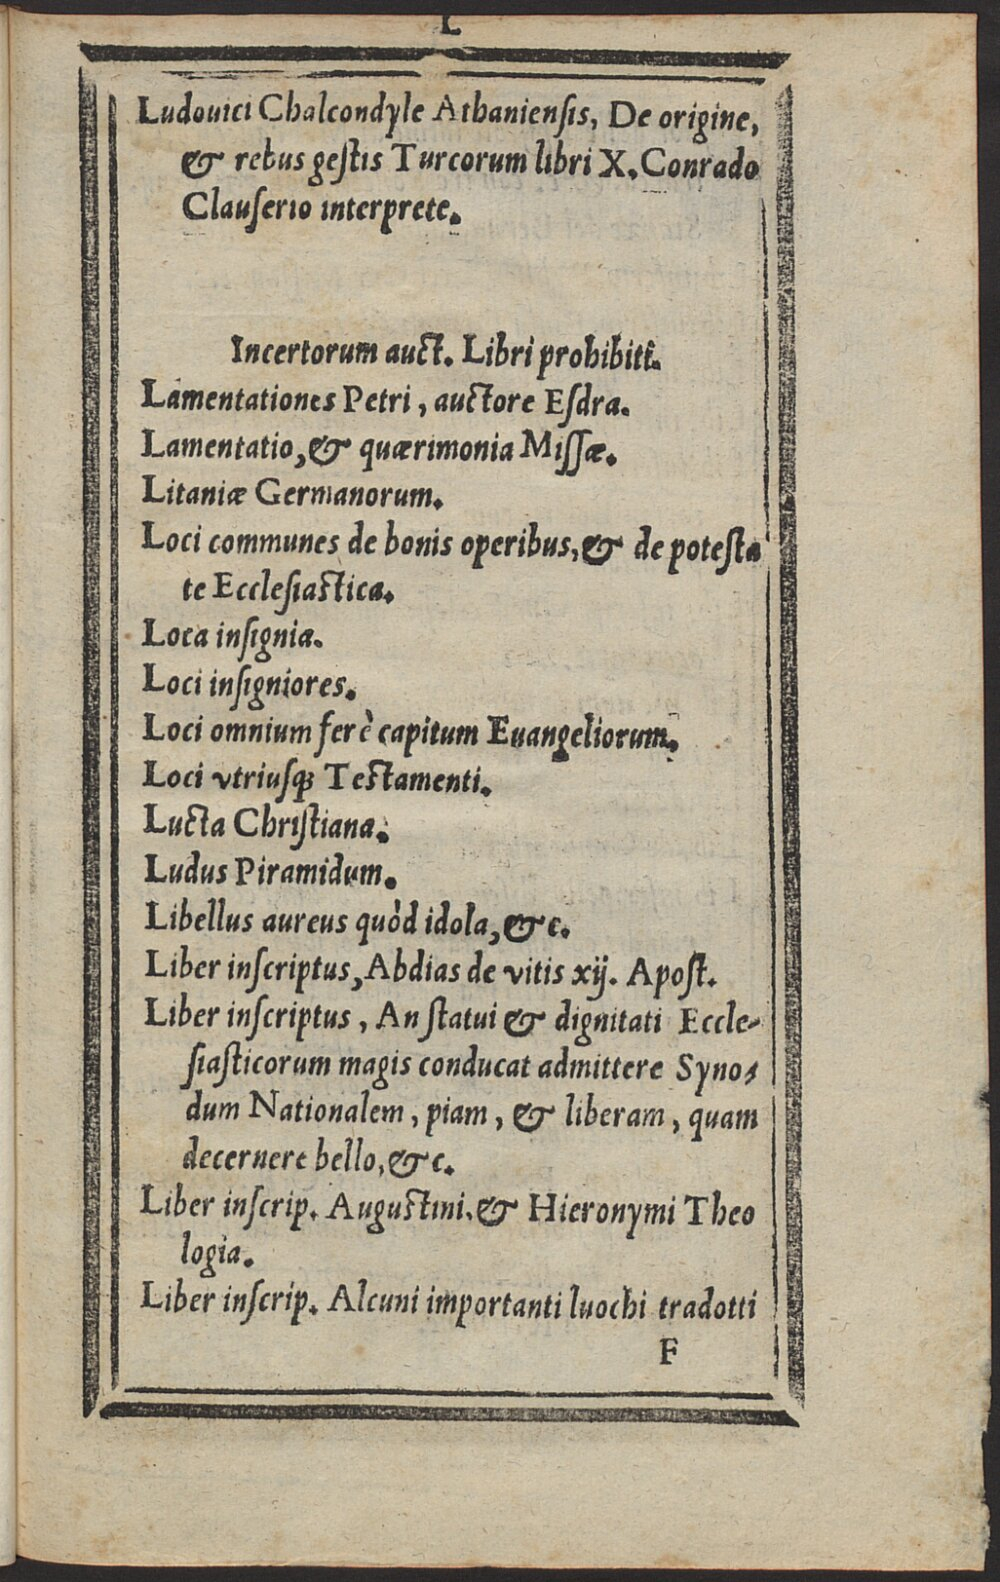 L
Ludouici Chalcondyle Athaniensis, De origine,
& rebus gestis Turcorum libri X. Conrado
Clauserio interprete.
Incertorum auct. Libri prohibiti.
Lamentationes Petri, auctore Esdra.
Lamentatio, & quærimonia Missæ.
Litaniæ Germanorum.
Loci communes de bonis operibus, & de potesta
te Ecclesiastica.
Loca insignia.
Loci insigniores.
Loci omnium ferè capitum Euangeliorum.
Loci vtriusq; Testamenti.
Lucta Christiana.
Ludus Piramidum.
Libellus aureus quòd idola, &c.
Liber inscriptus, Abdias de vitis xij. Apost.
Liber inscriptus, An statui & dignitati Eccle-
siasticorum magis conducat admittere Syno-
dum Nationalem, piam, & liberam, quam
decernere bello, &c.
Liber inscrip. Augustini. & Hieronymi Theo
logia.
Liber inscrip. Alcuni importanti luochi tradotti
F